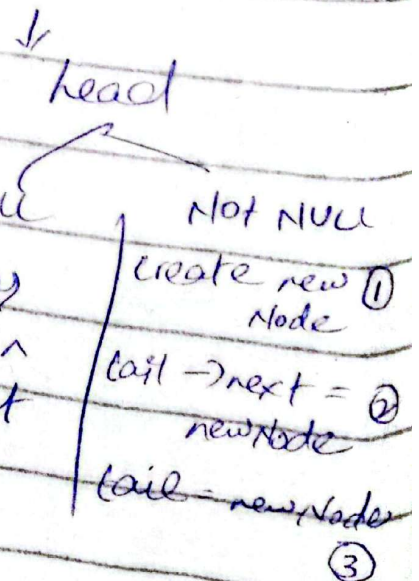 head
Not NULL
create new ①
Node
tail → next = ②
newNode
tail = newNode
③